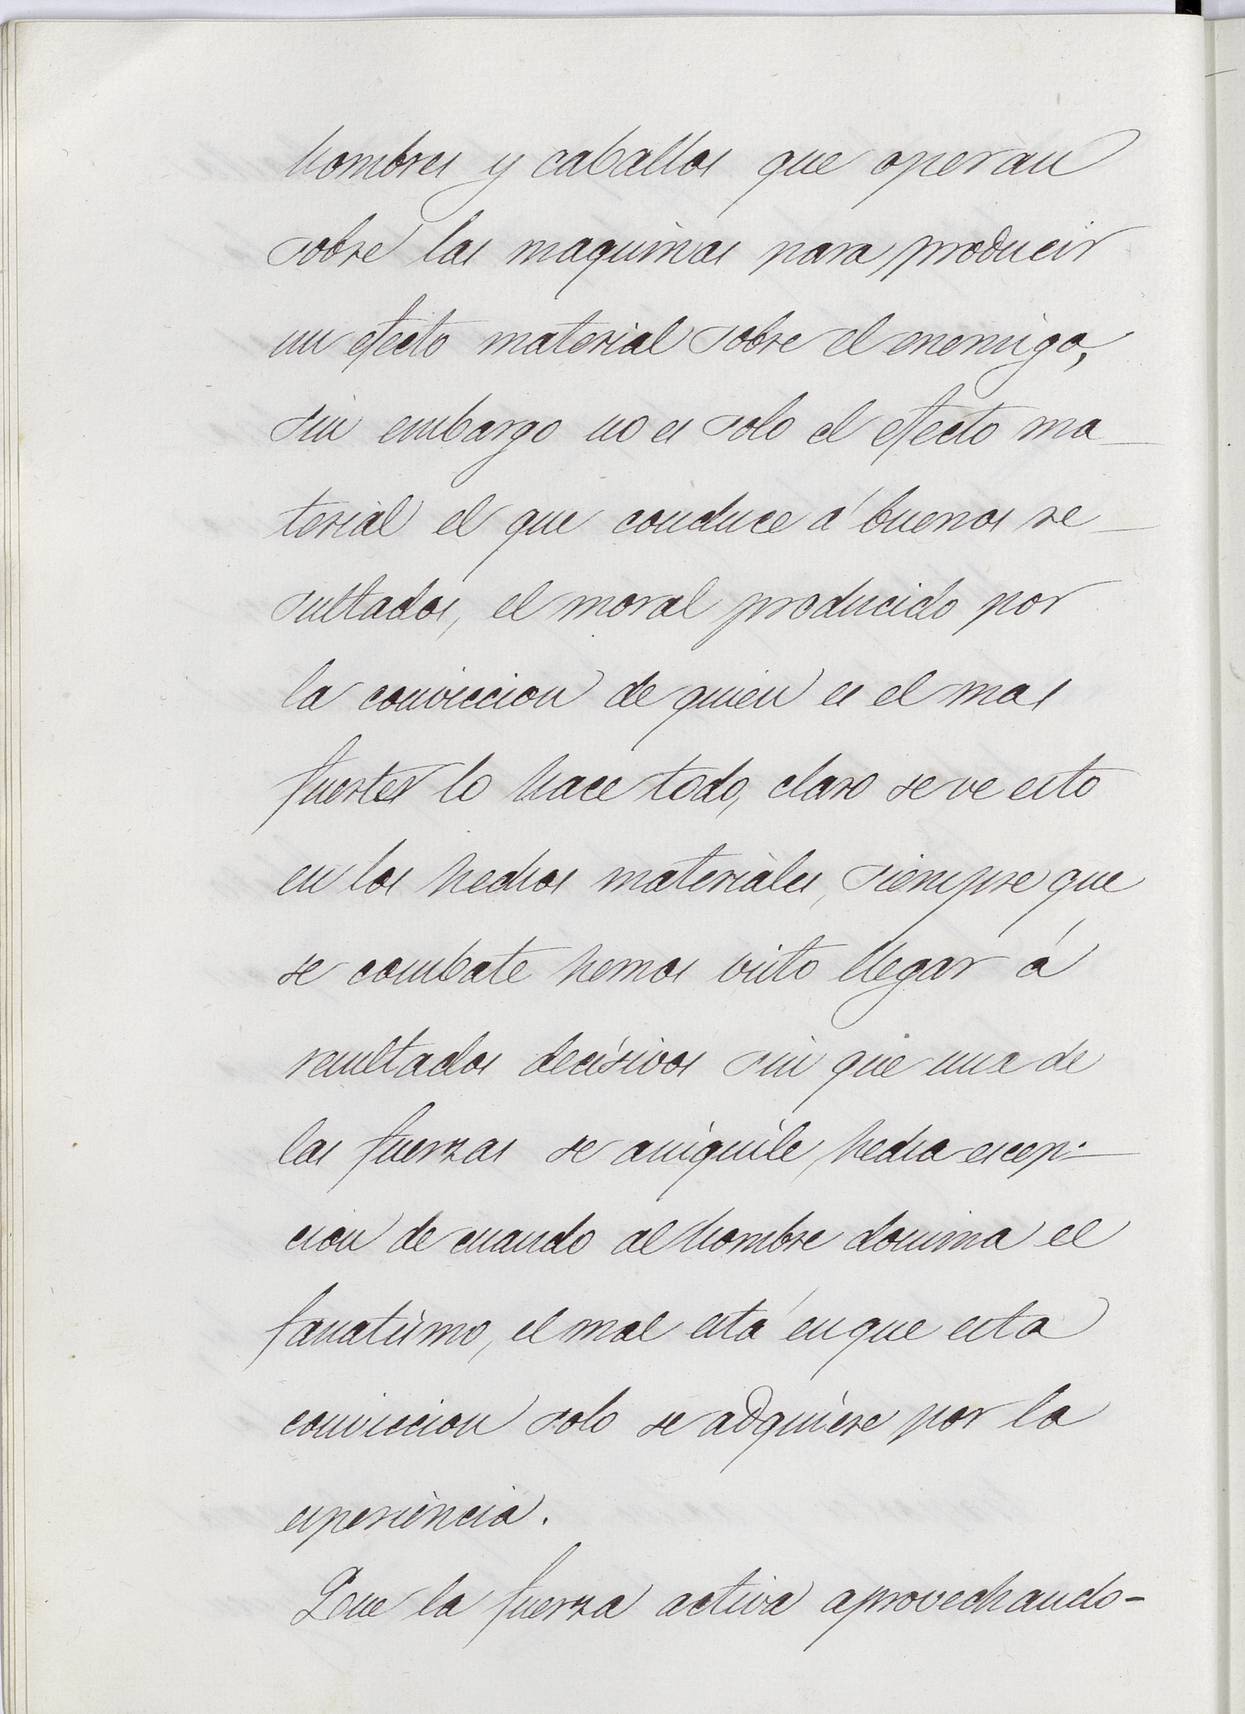 hombres y caballos que operan
sobre las maquinas para producir
un efecto material sobre el enemigo,
sin embargo no es solo el efecto ma-
terial el que conduce á buenos re-
sultados, el moral producido por
la conviccion de quien es el mas
fuerte lo hace todo, claro se ve esto
en los hechos materiales, siempre que
se combate hemos visto llegar á
resultados decisivos sin que una de
las fuerzas se aniquile, hecha escep-
cion de cuando al hombre domina el
fanatismo, el mal está en que esta
conviccion solo se adquiere por la
esperiencia.
Que la fuerza activa aprovechando-